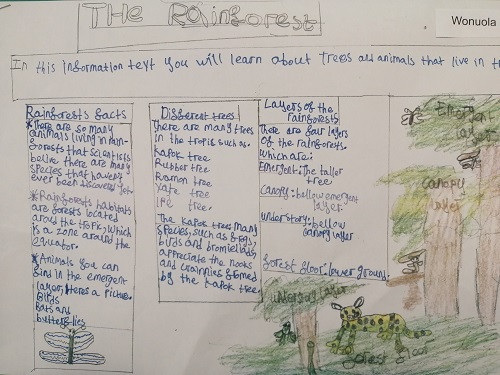 THE Rainforest
Wonuola
In this information text you will learn about trees and animals that live in
Rainforests facts
*There are so many
animals living in rain-
forests that scientists
belive there are many
species that haven't
ever been discovered yet.
*Rainforests habitats
are forests located
around the tropics, which
is a zone around the
equator.
*Animals you can
find in the emergent
layer. Heres a picture.
Birds
Bats and
butterflies
Different trees
There are many trees
in the tropis such as:
Kapok tree
Rubber tree
Ramon tree
Yate tree
Ipe tree.
The kapok trees many
species, such as frogs,
birds and bromeliads
appreciate the nooks
and crannies formed
by the kapok tree.
Layers of the
rainforests
There are four layers
of the rainforests.
which are:
Emergent: The taller
tree
Canopy: bellow emergent
layer.
understory: bellow
canopy layer
forest floor: lower ground.
Emergent
layer
canopy
layer
understory layer
forest floor